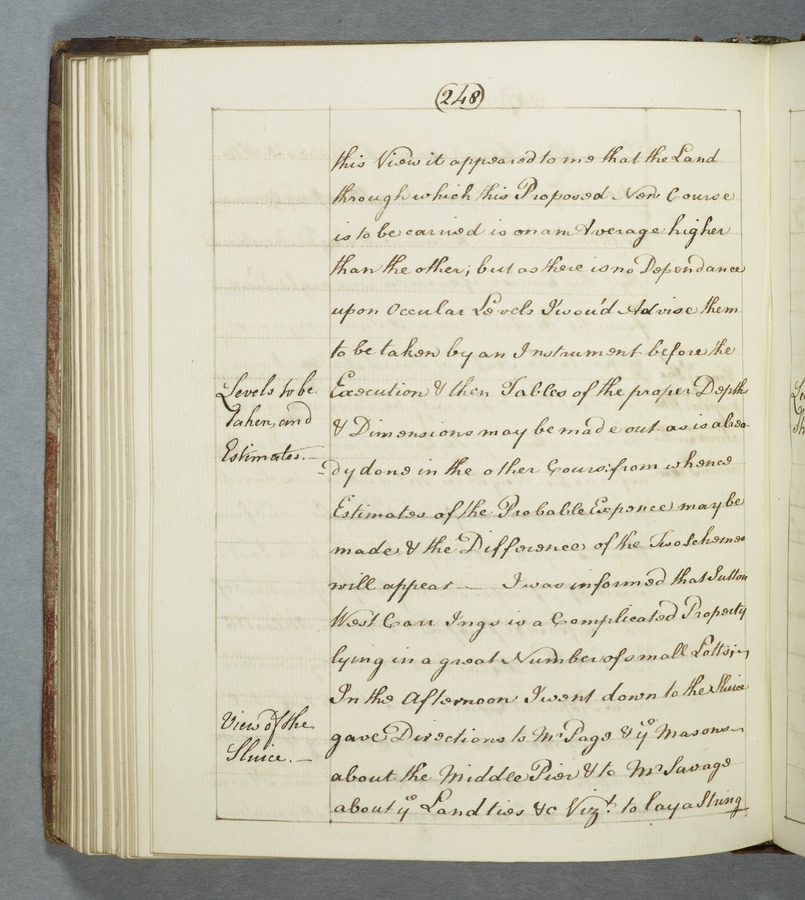 248
this View it appeared to me that the Land
through which this Proposed New Course
is to be carried is on an Average higher
than the other; but as there is no Dependance
upon Occular Levels I wou'd Advise them
to be taken by an Instrument before the
Levels to be
taken, and
Estimates.—
Execution & then Tables of the proper Depths
& Dimensions may be made out as is alrea-
-dy done in the other Course: from whence
Estimates of the Probable Expence may be
made & the Difference of the Two Schemes
will appear — I was informed that Sutton
West Carr Ings is a Complicated Property
lying in a great Number of small Lotts;—
In the Afternoon I went down to the Sluice
View of the
Sluice.—
gave Directions to Mr Page & ye Masons—
about the Middle Pier & to Mr Savage
about ye Land ties &c Vizt. to lay a String